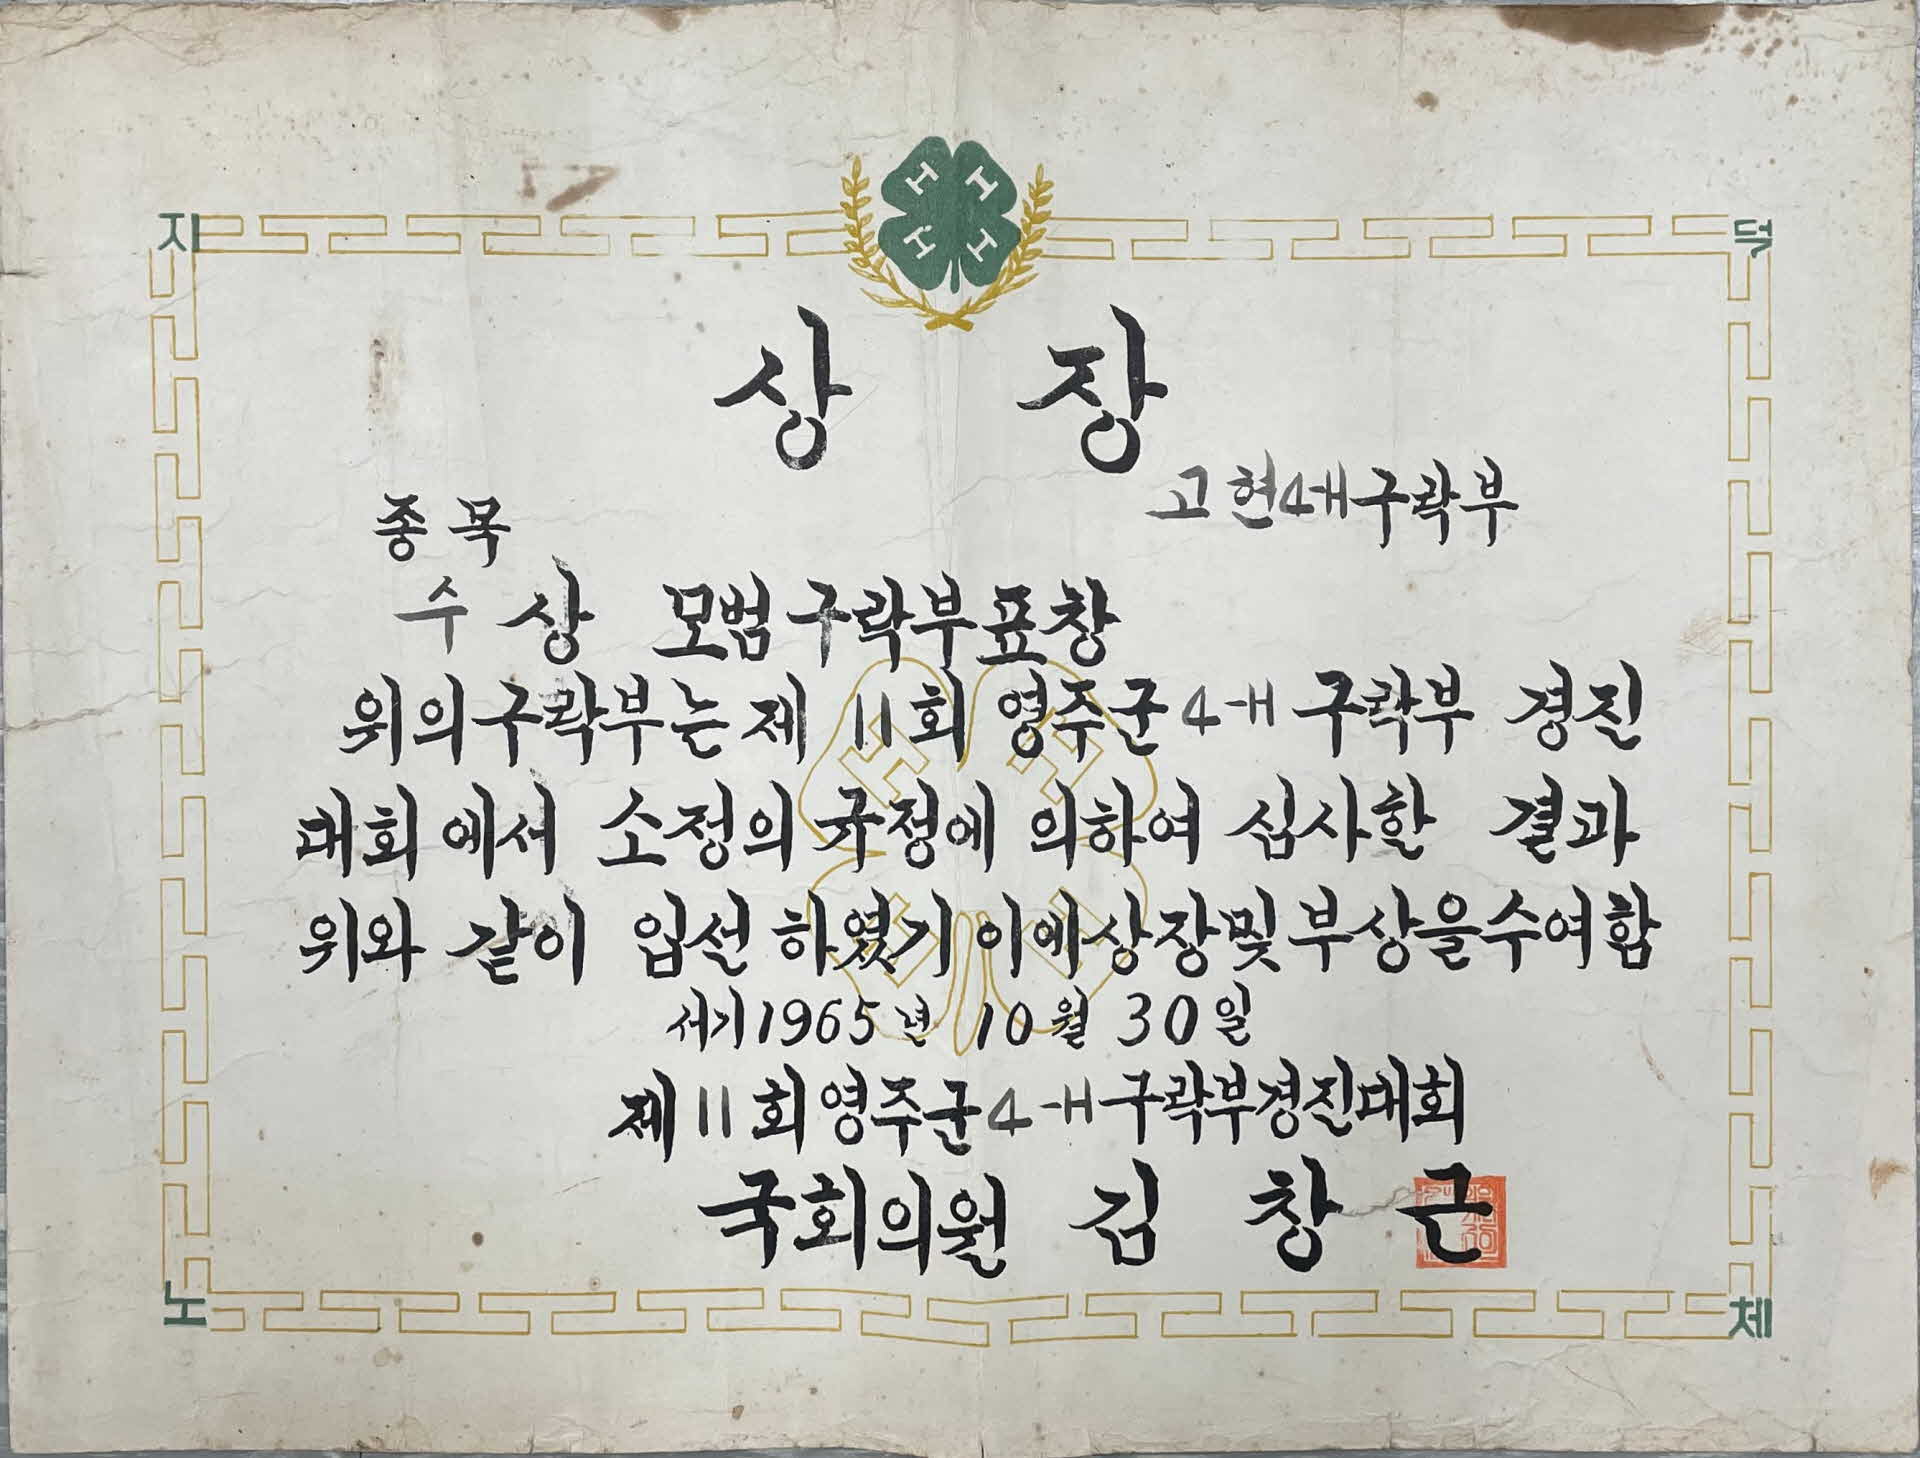 지 덕
H H
H H
상 장
고현4-H구락부
종목
수상 모범구락부표창
위의구락부는제 11회 영주군4-H 구락부 경진
대회에서 소정의규정에 의하여 심사할 결과
위와 같이 입선하였기이에상장및부상을수여함
서기1965년 10월 30일
제11회영주군4-H구락부경진대회
국회의원 김 창 근
노 체